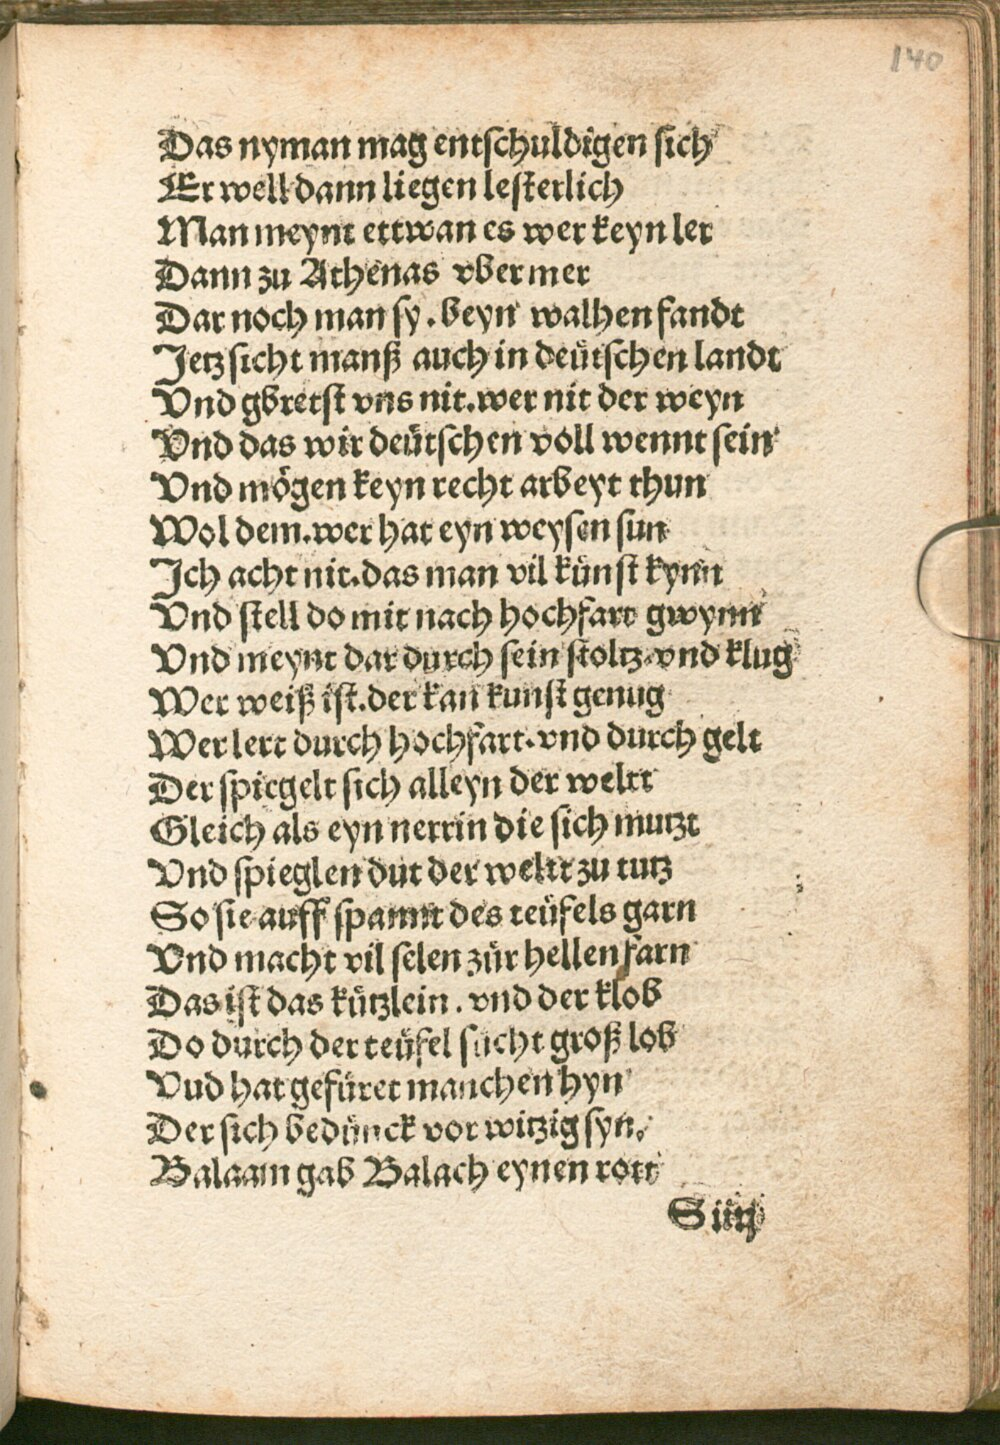 140
Das nyman mag entschuldigen sich
Er well dann liegen lesterlich
Man meynt ettwan es wer keyn ler
Dann zu Athenas vber mer
Dar noch man sy. beyn walhen fandt
Jetz sicht manß auch in deütschen landt
Vnd gbretst vns nit. wer nit der weyn
Vnd das wir deütschen voll wennt sein
Vnd mögen keyn recht arbeyt thun
Wol dem. wer hat eyn weysen sun
Jch acht nit. das man vil künst kynn
Vnd stell do mit nach hochfart gwynn
Vnd meynt dar durch sein stoltz. vnd klug
Wer weiß ist. der kan kunst genug
Wer lert durch hochfart. vnd durch gelt
Der spiegelt sich alleyn der weltt
Gleich als eyn nerrin die sich mutzt
Vnd spieglen dut der weltt zu tutz
So sie auff spannt des teüfels garn
Vnd macht vil selen zür hellen farn
Das ist das kützlein. vnd der klob
Do durch der teüfel sücht groß lob
Vud hat gefüret manchen hyn
Der sich bedünck vor witzig syn.
Balaam gab Balach eynen rott